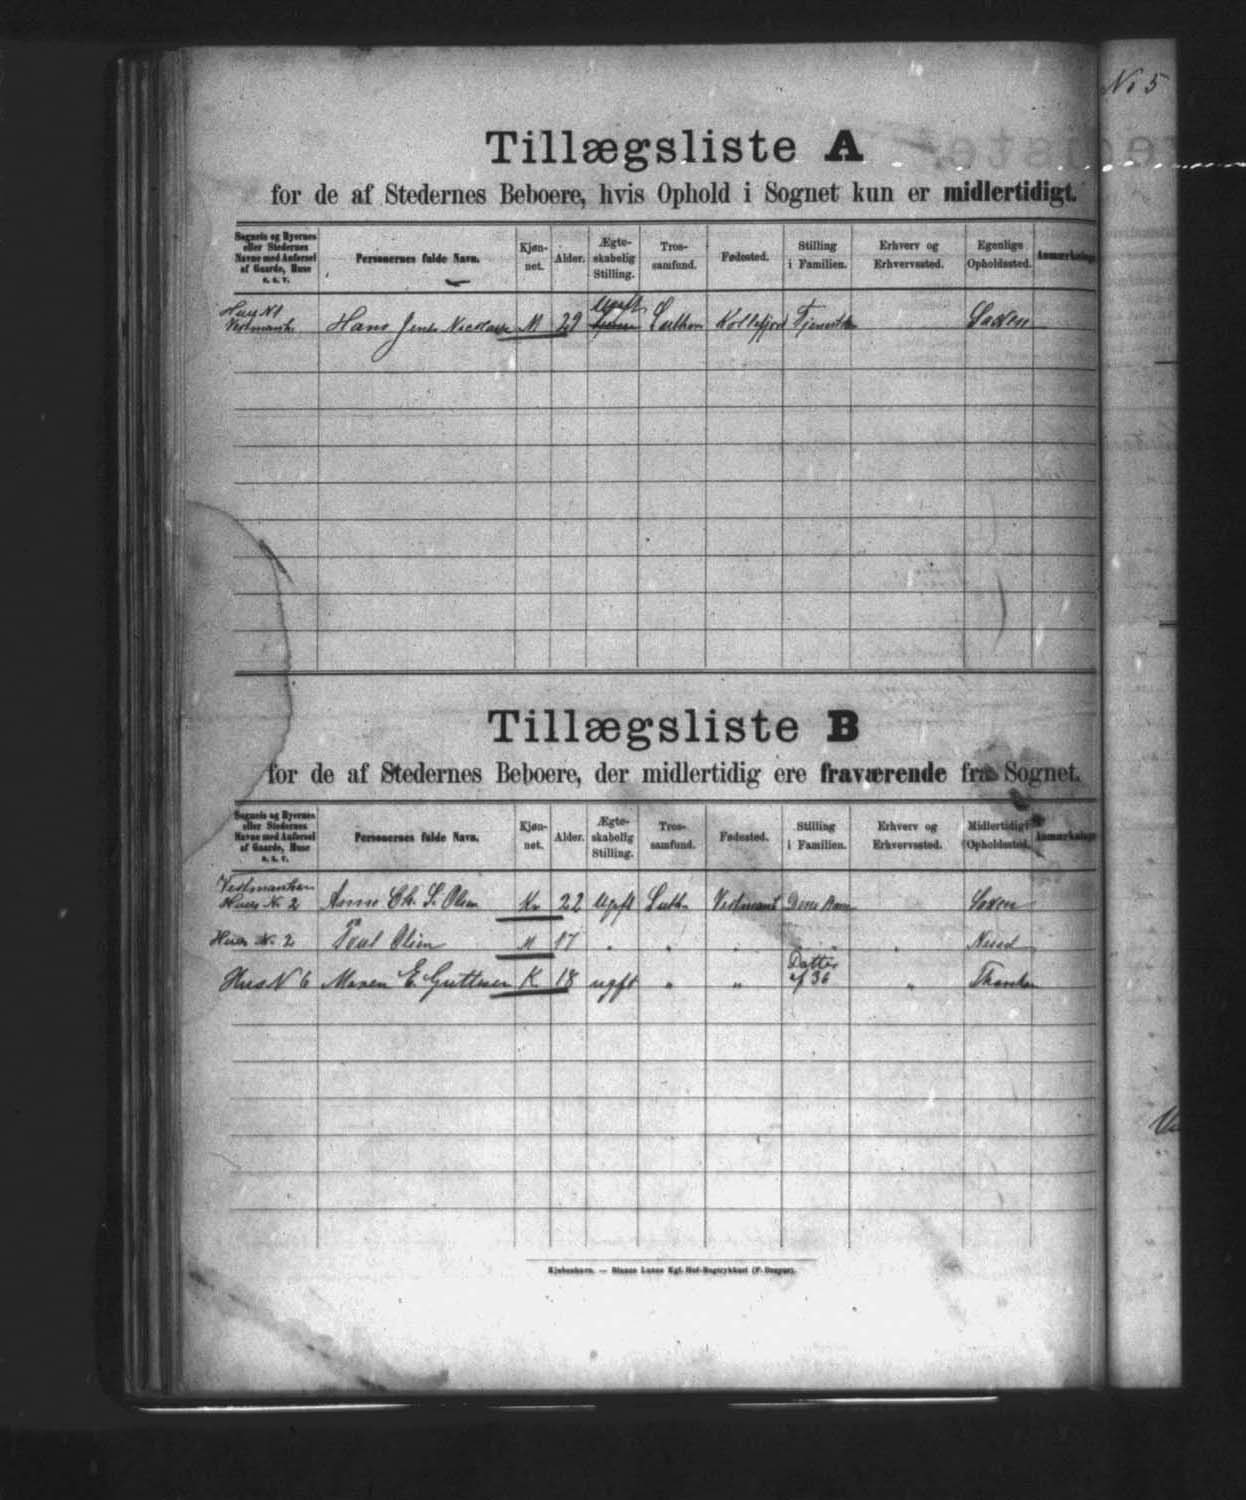 No 5
Tillægsliste A
for de af Stedernes Beboere, hvis Ophold i Sognet kun er midlertidigt.
Sognets og Byernes eller Stedernes Navne med Anførsel af Gaarde, Huse o. s. v. Personernes fulde Navn. Kjøn-net. Alder. Ægte-skabelig Stilling. Tros-samfund. Fødested. Stilling i Familien. Erhverv og Erhvervssted. Egenlige Opholdssted. Anmærkning
Huus N1 Vestmanh Hans Jens M 29 Ugift Luth Kollefjord
Tillægsliste B
for de af Stedernes Beboere, der midlertidig ere fraværende fra Sognet.
Sognets og Byernes eller Stedernes Navne med Anførsel af Gaarde, Huse o. s. v. Personernes fulde Navn. Kjøn-net. Alder. Ægte-skabelig Stilling. Tros-samfund. Fødested. Stilling i Familien. Erhverv og Erhvervssted. Midlertidigt Opholdssted. Anmærkning
Huus No. 2 Anne Ch. S. Olsen Kv 22 Ugift Luth.
Huus No. 2 Poul Olsen M 17 " " " " "
Hus N 6 Maren E. K 18 ugft " " Datter af 36 "
Kjøbenhavn. — Bianco Lunos Kgl. Hof-Bogtrykkeri (F. Dreyer).